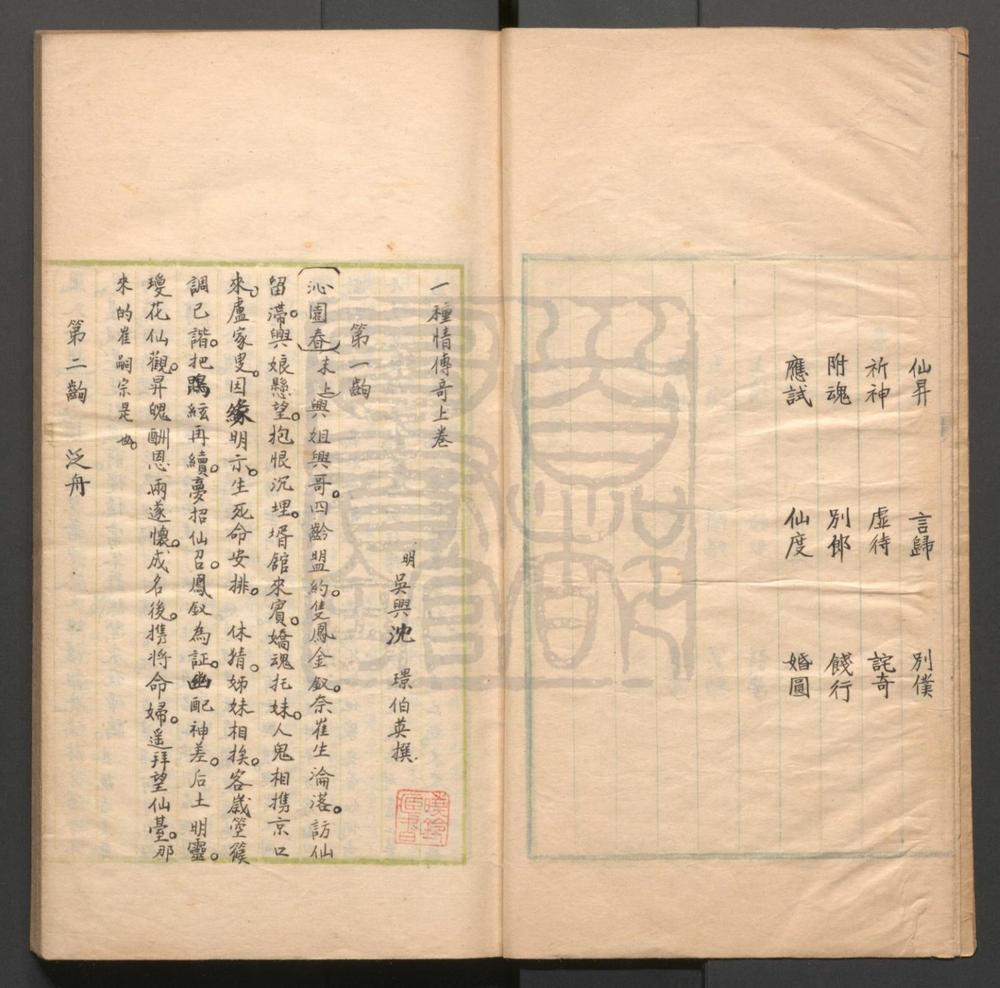 仙昇 言歸 別僕
祈神 虛待 詫奇
附魂 別邸 餞行
應試 仙度 婚圓
一種情傳奇上卷
明 吳興沈 璟伯英撰
第一齣
（沁園春）末上興姐興哥。四齡盟約。隻鳳金釵。奈崔生淪落。訪仙
留滯。興娘懸望。抱恨沉埋。壻館來賓。嬌魂托妹。人鬼相携京口
來。盧家叟。因緣明示。生死命安排。 休猜。姊妹相挨。客歲箜篌
調已諧。把鵾絃再續。夢招仙召。鳳釵為証。幽配神差。后土明靈。
瓊花仙觀。昇魄酬恩兩遂懷。成名後。携將命婦。遥拜望仙臺。那
來的崔嗣宗是也。
第二齣 泛舟